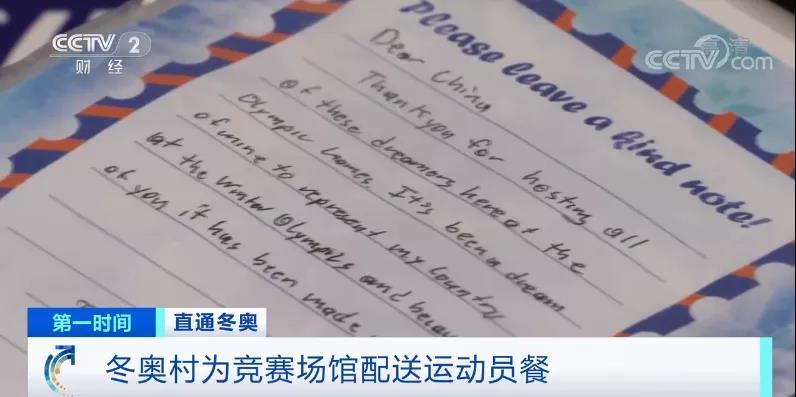 CCTV 2
财经
高清
CCTV.com
Please leave a kind note!
Dear China
Thankyou for hosting all
of these dreamers here at the
Olympic Games. It's been a dream
of mine to represent my country
at the Winter Olympics and becau
of you it has been made
第一时间
直通冬奥
冬奥村为竞赛场馆配送运动员餐